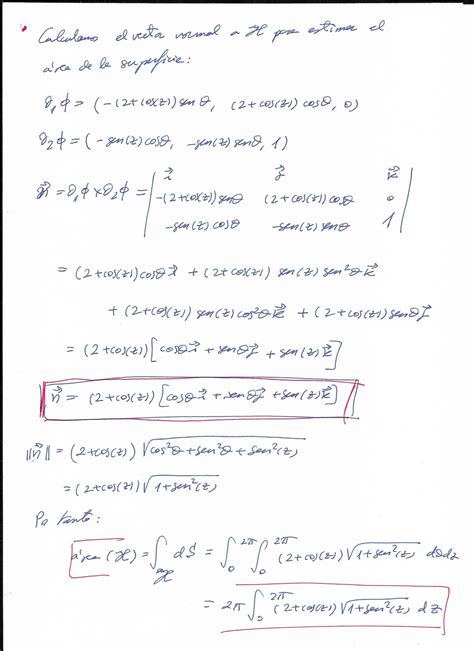 Calculamos el vector normal a ℋ para estimar el
área de la superficie:
∂₁ϕ = (-(2+cos(z))sen θ, (2+cos(z)) cosθ, 0)
∂₂ϕ = (-sen(z)cosθ, -sen(z)senθ, 1)
n⃗ = ∂₁ϕ × ∂₂ϕ = | i⃗ j⃗ k⃗ |
| -(2+cos(z))senθ (2+cos(z))cosθ 0 |
| -sen(z)cosθ -sen(z)senθ 1 |
= (2+cos(z))cosθ i⃗ + (2+cos(z)) sen(z) sen²θ k⃗
+ (2+cos(z)) sen(z) cos²θ k⃗ + (2+cos(z))senθ j⃗
= (2+cos(z)) [cosθ i⃗ + senθ j⃗ + sen(z) k⃗]
n⃗ = (2+cos(z)) [cosθ i⃗ + senθ j⃗ + sen(z) k⃗]
||n⃗|| = (2+cos(z)) √(cos²θ + sen²θ + sen²(z))
= (2+cos(z)) √(1+sen²(z))
Por tanto:
área (ℋ) = ∫_ℋ dS = ∫₀^2π ∫₀^2π (2+cos(z)) √(1+sen²(z)) dθdz
= 2π ∫₀^2π (2+cos(z)) √(1+sen²(z)) dz